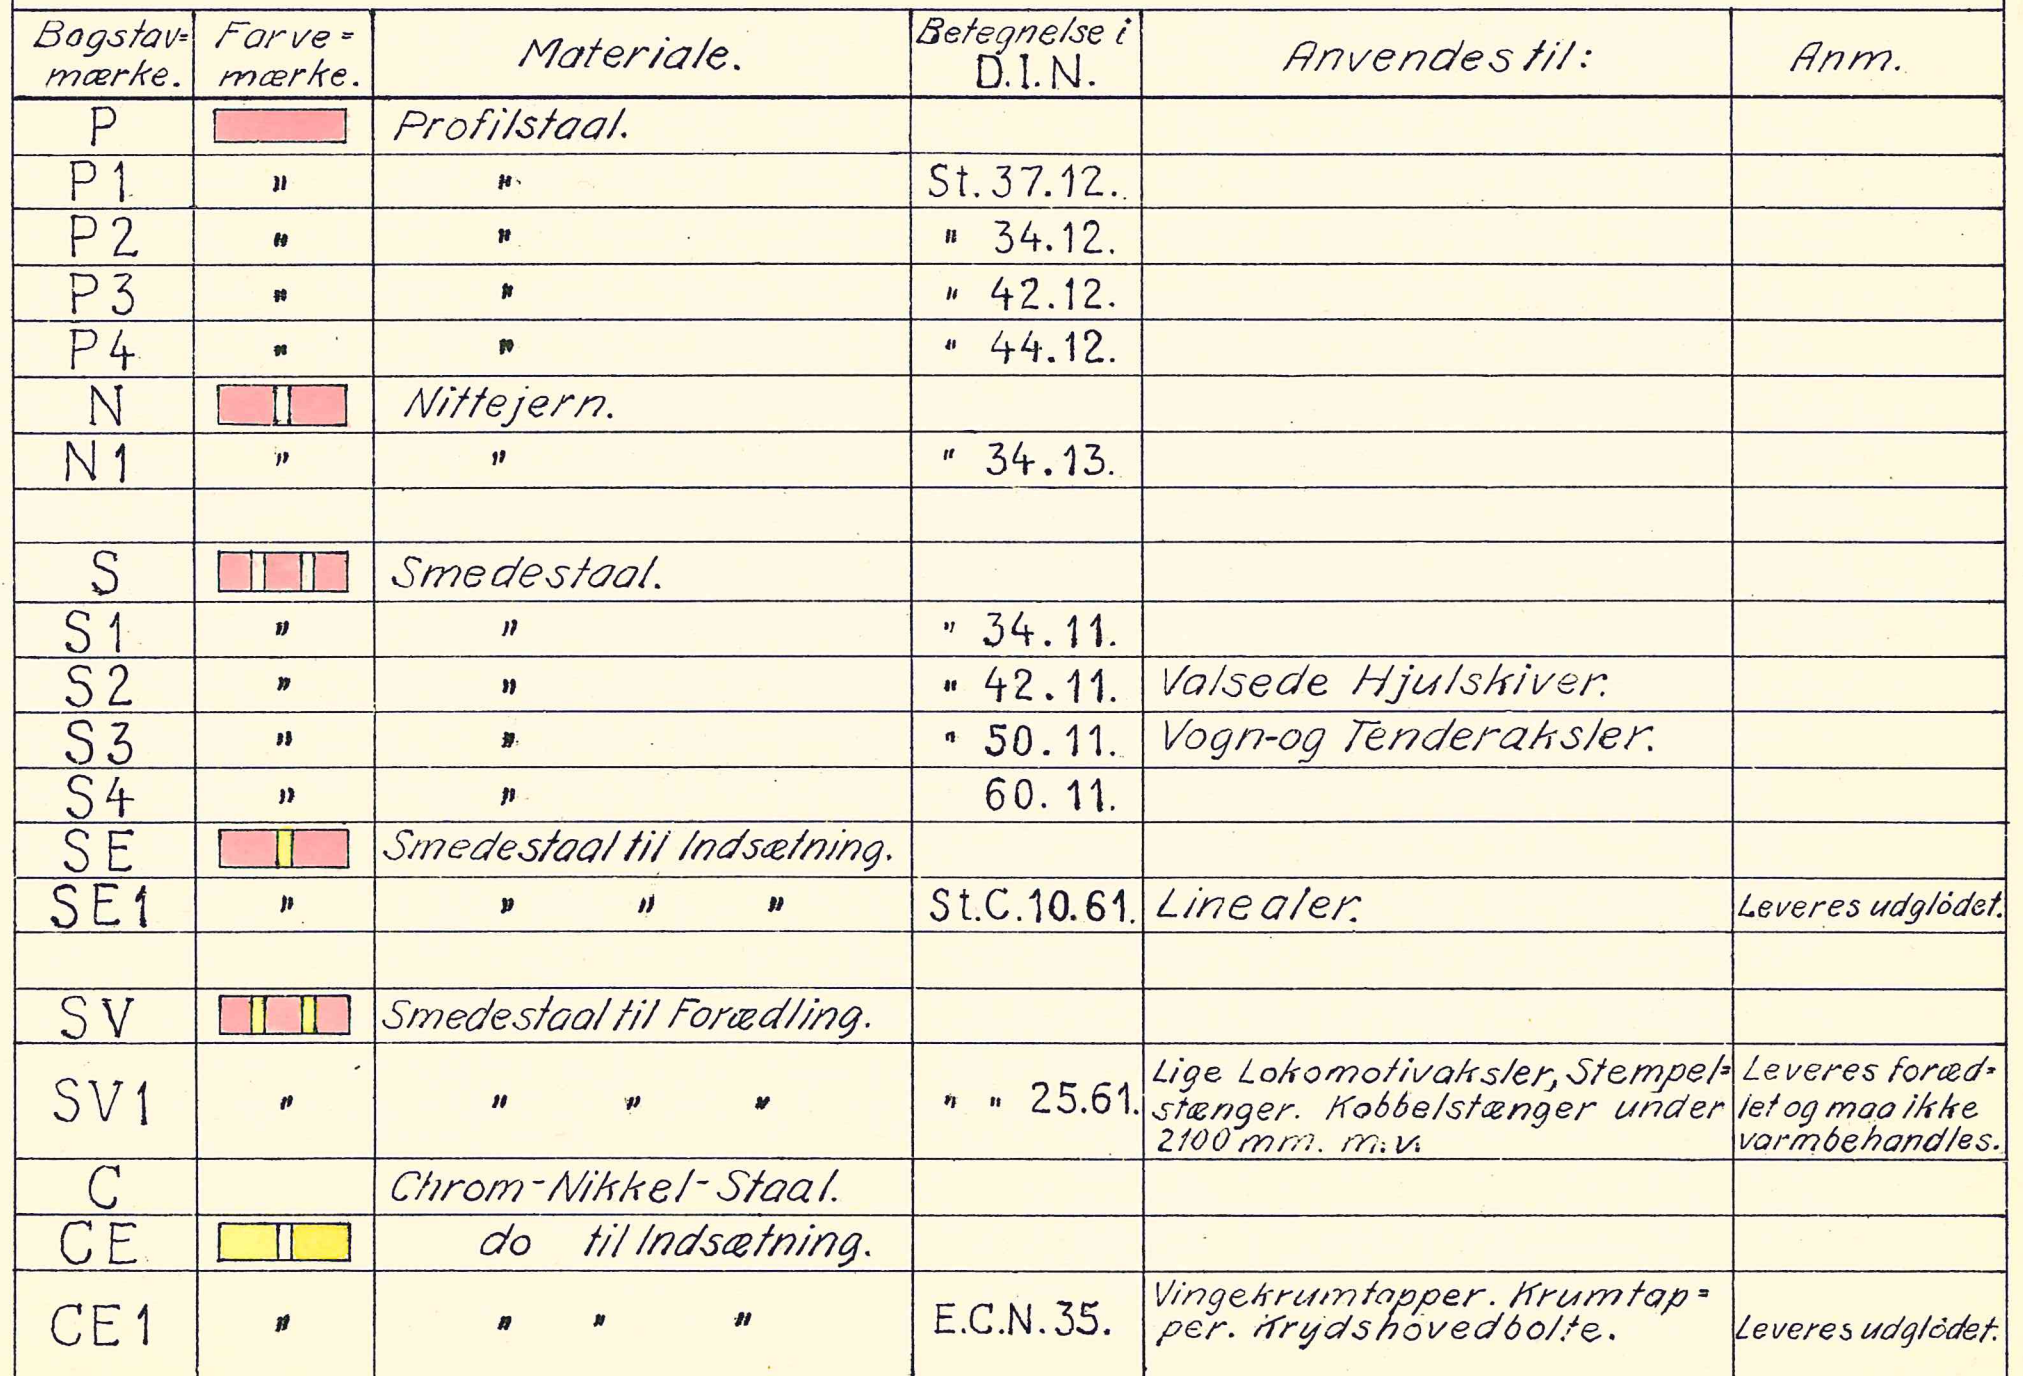 Bogstav= Farve= Materiale. Betegnelse i Anvendes til: Anm.
mærke. mærke. D.I.N.
P Profilstaal.
P1 " " St. 37.12.
P2 " " " 34.12.
P3 " " " 42.12.
P4 " " " 44.12.
N Nittejern.
N1 " " " 34.13.
S Smedestaal.
S1 " " " 34.11.
S2 " " " 42.11. Valsede Hjulskiver.
S3 " " " 50.11. Vogn-og Tenderaksler.
S4 " " 60.11.
SE Smedestaal til Indsætning.
SE1 " " " " St.C.10.61. Linealer. Leveres udglödet.
SV Smedestaal til Forædling.
SV1 " " " " " " 25.61. Lige Lokomotivaksler, Stempel= Leveres foræd=
stænger. Kobbelstænger under let og maa ikke
2100 mm. m.v. varmbehandles.
C Chrom-Nikkel-Staal.
CE do til Indsætning.
CE1 " " " " E.C.N.35. Vingekrumtapper. Krumtap=
per. Krydshovedbolte. Leveres udglödet.